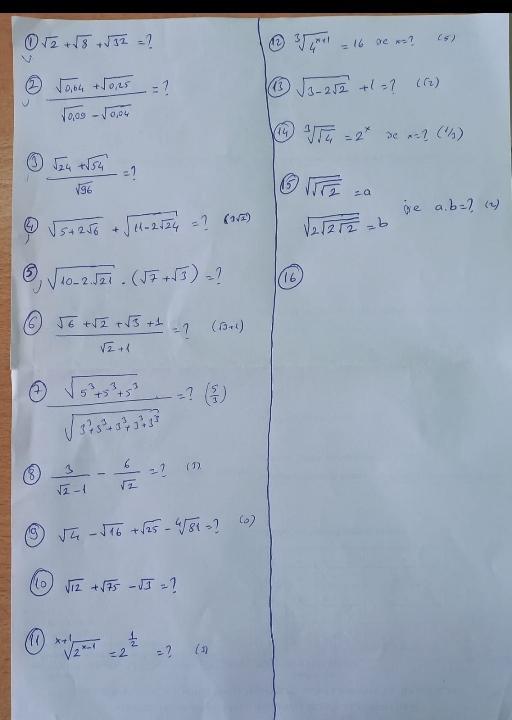 ① √2 + √8 + √32 = ?
② (√0,64 + √0,25) / (√0,09 − √0,04) = ?
③ (√24 + √54) / √96 = ?
④ √(5+2√6) + √(11−2√24) = ? (3√2)
⑤ √(10−2√21) . (√7 + √3) = ?
⑥ (√6 + √2 + √3 + 1) / (√2 + 1) = ? (√3+1)
⑦ √(5³+5³+5³) / √(3³+3³+3³+3³+3³) = ? (5/3)
⑧ 3/(√2−1) − 6/√2 = ? (3)
⑨ √4 − √16 + √25 − ⁴√81 = ? (0)
⑩ √12 + √75 − √3 = ?
⑪ ˣ⁺¹√(2ˣ⁻¹) = 2^(1/2) = ? (3)
⑫ ³√(4ˣ⁺¹) = 16 ise x = ? (5)
⑬ √(3−2√2) + 1 = ? (√2)
⑭ ³√√4 = 2ˣ ise x = ? (1/3)
⑮ √√√2 = a
ise a.b = ? (2)
√(2√(2√2)) = b
⑯